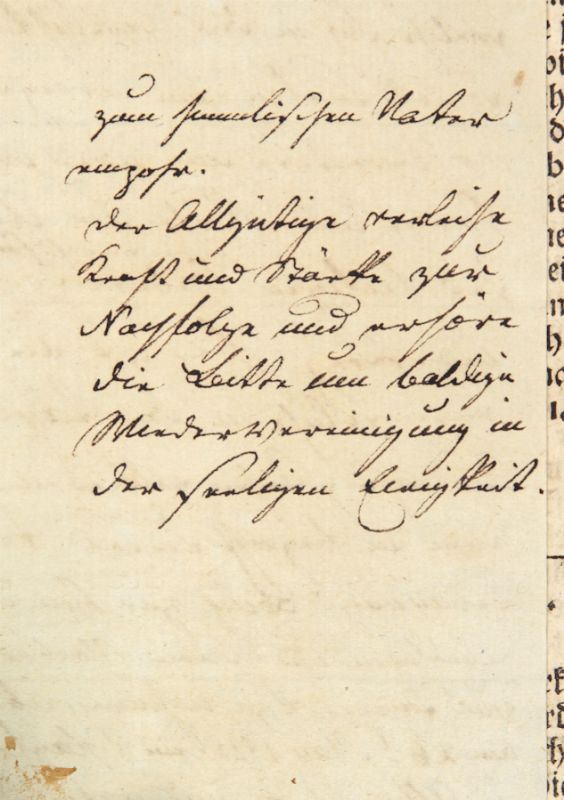 zum himmlischen Vater
empohr.
der Allgütige verleihe
Kraft und Stärke zur
Nachfolge und erhöre
die Bitte um baldige
Wiedervereinigung in
der seeligen Ewigkeit.